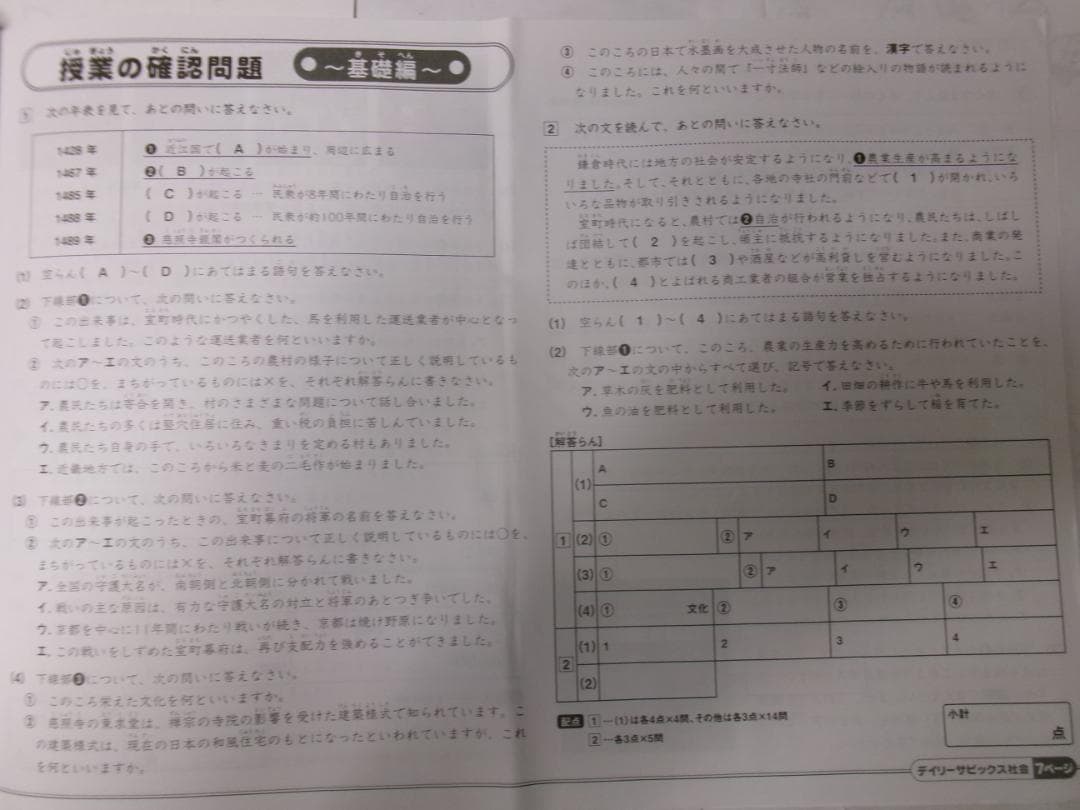 授業の確認問題 ～基礎編～
1 次の年表を見て、あとの問いに答えなさい。
1428年 ❶近江国で( A )が始まり、周辺に広まる
1467年 ❷( B )が起こる
1485年 ( C )が起こる … 民衆が8年間にわたり自治を行う
1488年 ( D )が起こる … 民衆が約100年間にわたり自治を行う
1489年 ❸慈照寺銀閣がつくられる
(1) 空らん( A )～( D )にあてはまる語句を答えなさい。
(2) 下線部❶について、次の問いに答えなさい。
① この出来事は、室町時代にかつやくした、馬を利用した運送業者が中心となっ
て起こしました。このような運送業者を何といいますか。
② 次のア～エの文のうち、このころの農村の様子について正しく説明しているも
のには○を、まちがっているものには×を、それぞれ解答らんに書きなさい。
ア．農民たちは寄合を開き、村のさまざまな問題について話し合いました。
イ．農民たちの多くは竪穴住居に住み、重い税の負担に苦しんでいました。
ウ．農民たち自身の手で、いろいろなきまりを定める村もありました。
エ．近畿地方では、このころから米と麦の二毛作が始まりました。
(3) 下線部❷について、次の問いに答えなさい。
① この出来事が起こったときの、室町幕府の将軍の名前を答えなさい。
② 次のア～エの文のうち、この出来事について正しく説明しているものには○を、
まちがっているものには×を、それぞれ解答らんに書きなさい。
ア．全国の守護大名が、南朝側と北朝側に分かれて戦いました。
イ．戦いの主な原因は、有力な守護大名の対立と将軍のあとつぎ争いでした。
ウ．京都を中心に11年間にわたり戦いが続き、京都は焼け野原になりました。
エ．この戦いをしずめた室町幕府は、再び支配力を強めることができました。
(4) 下線部❸について、次の問いに答えなさい。
① このころ栄えた文化を何といいますか。
② 慈照寺の東求堂は、禅宗の寺院の影響を受けた建築様式で知られています。こ
の建築様式は、現在の日本の和風住宅のもとになったといわれていますが、これ
を何といいますか。
③ このころの日本で水墨画を大成させた人物の名前を、漢字で答えなさい。
④ このころには、人々の間で『一寸法師』などの絵入りの物語が読まれるように
なりました。これを何といいますか。
2 次の文を読んで、あとの問いに答えなさい。
鎌倉時代には地方の社会が安定するようになり、❶農業生産が高まるようにな
りました。そして、それとともに、各地の寺社の門前などで( 1 )が開かれ、いろ
いろな品物が取り引きされるようになりました。
室町時代になると、農村では❷自治が行われるようになり、農民たちは、しばし
ば団結して( 2 )を起こし、領主に抵抗するようになりました。また、商業の発
達とともに、都市では( 3 )や酒屋などが高利貸しを営むようになりました。こ
のほか、( 4 )とよばれる商工業者の組合が営業を独占するようになりました。
(1) 空らん( 1 )～( 4 )にあてはまる語句を答えなさい。
(2) 下線部❶について、このころ、農業の生産力を高めるために行われていたことを、
次のア～エの文の中からすべて選び、記号で答えなさい。
ア．草木の灰を肥料として利用した。 イ．田畑の耕作に牛や馬を利用した。
ウ．魚の油を肥料として利用した。 エ．季節をずらして稲を育てた。
[解答らん]
1 (1) A B
C D
(2) ① ② ア イ ウ エ
(3) ① ② ア イ ウ エ
(4) ① 文化 ② ③ ④
2 (1) 1 2 3 4
(2)
配点 1 …(1)は各4点×4問、その他は各3点×14問
2 …各3点×5問
小計 点
デイリーサピックス社会 7ページ